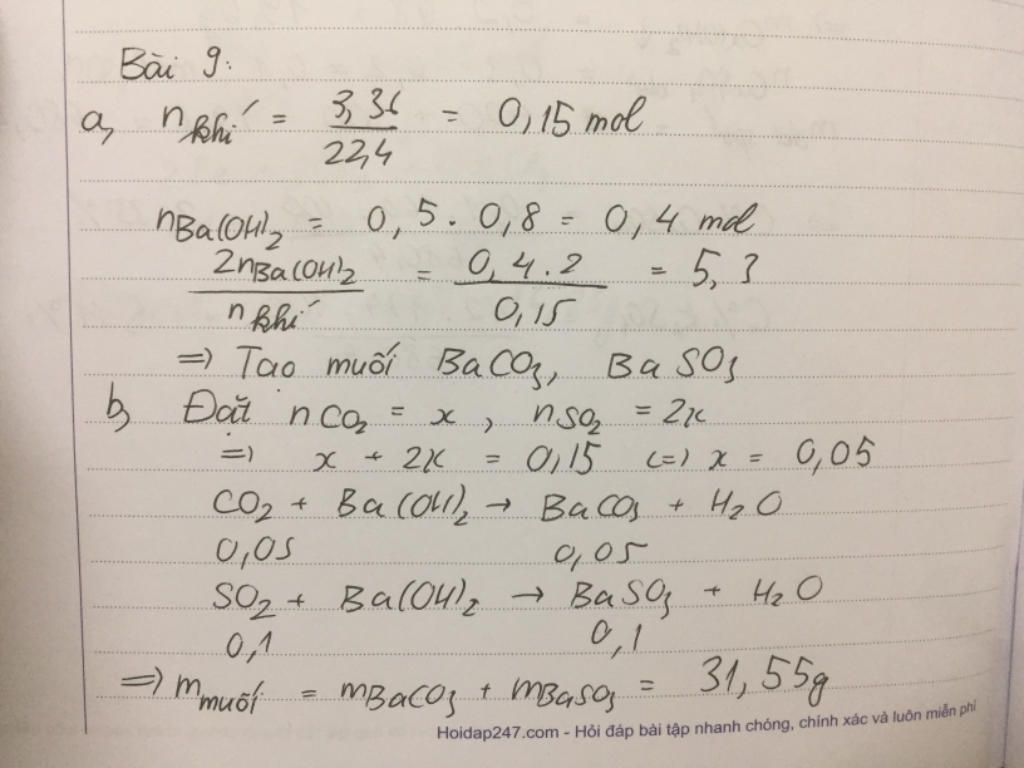 Bài 9:
a, n khí = 3,36 / 22,4 = 0,15 mol
nBa(OH)2 = 0,5 . 0,8 = 0,4 mol
2nBa(OH)2 / n khí = 0,4 . 2 / 0,15 = 5,3
=> Tạo muối BaCO3, BaSO3
b, Đặt nCO2 = x, nSO2 = 2x
=> x + 2x = 0,15 <=> x = 0,05
CO2 + Ba(OH)2 → BaCO3 + H2O
0,05 0,05
SO2 + Ba(OH)2 → BaSO3 + H2O
0,1 0,1
=> m muối = mBaCO3 + mBaSO3 = 31,55g
Hoidap247.com - Hỏi đáp bài tập nhanh chóng, chính xác và luôn miễn phí